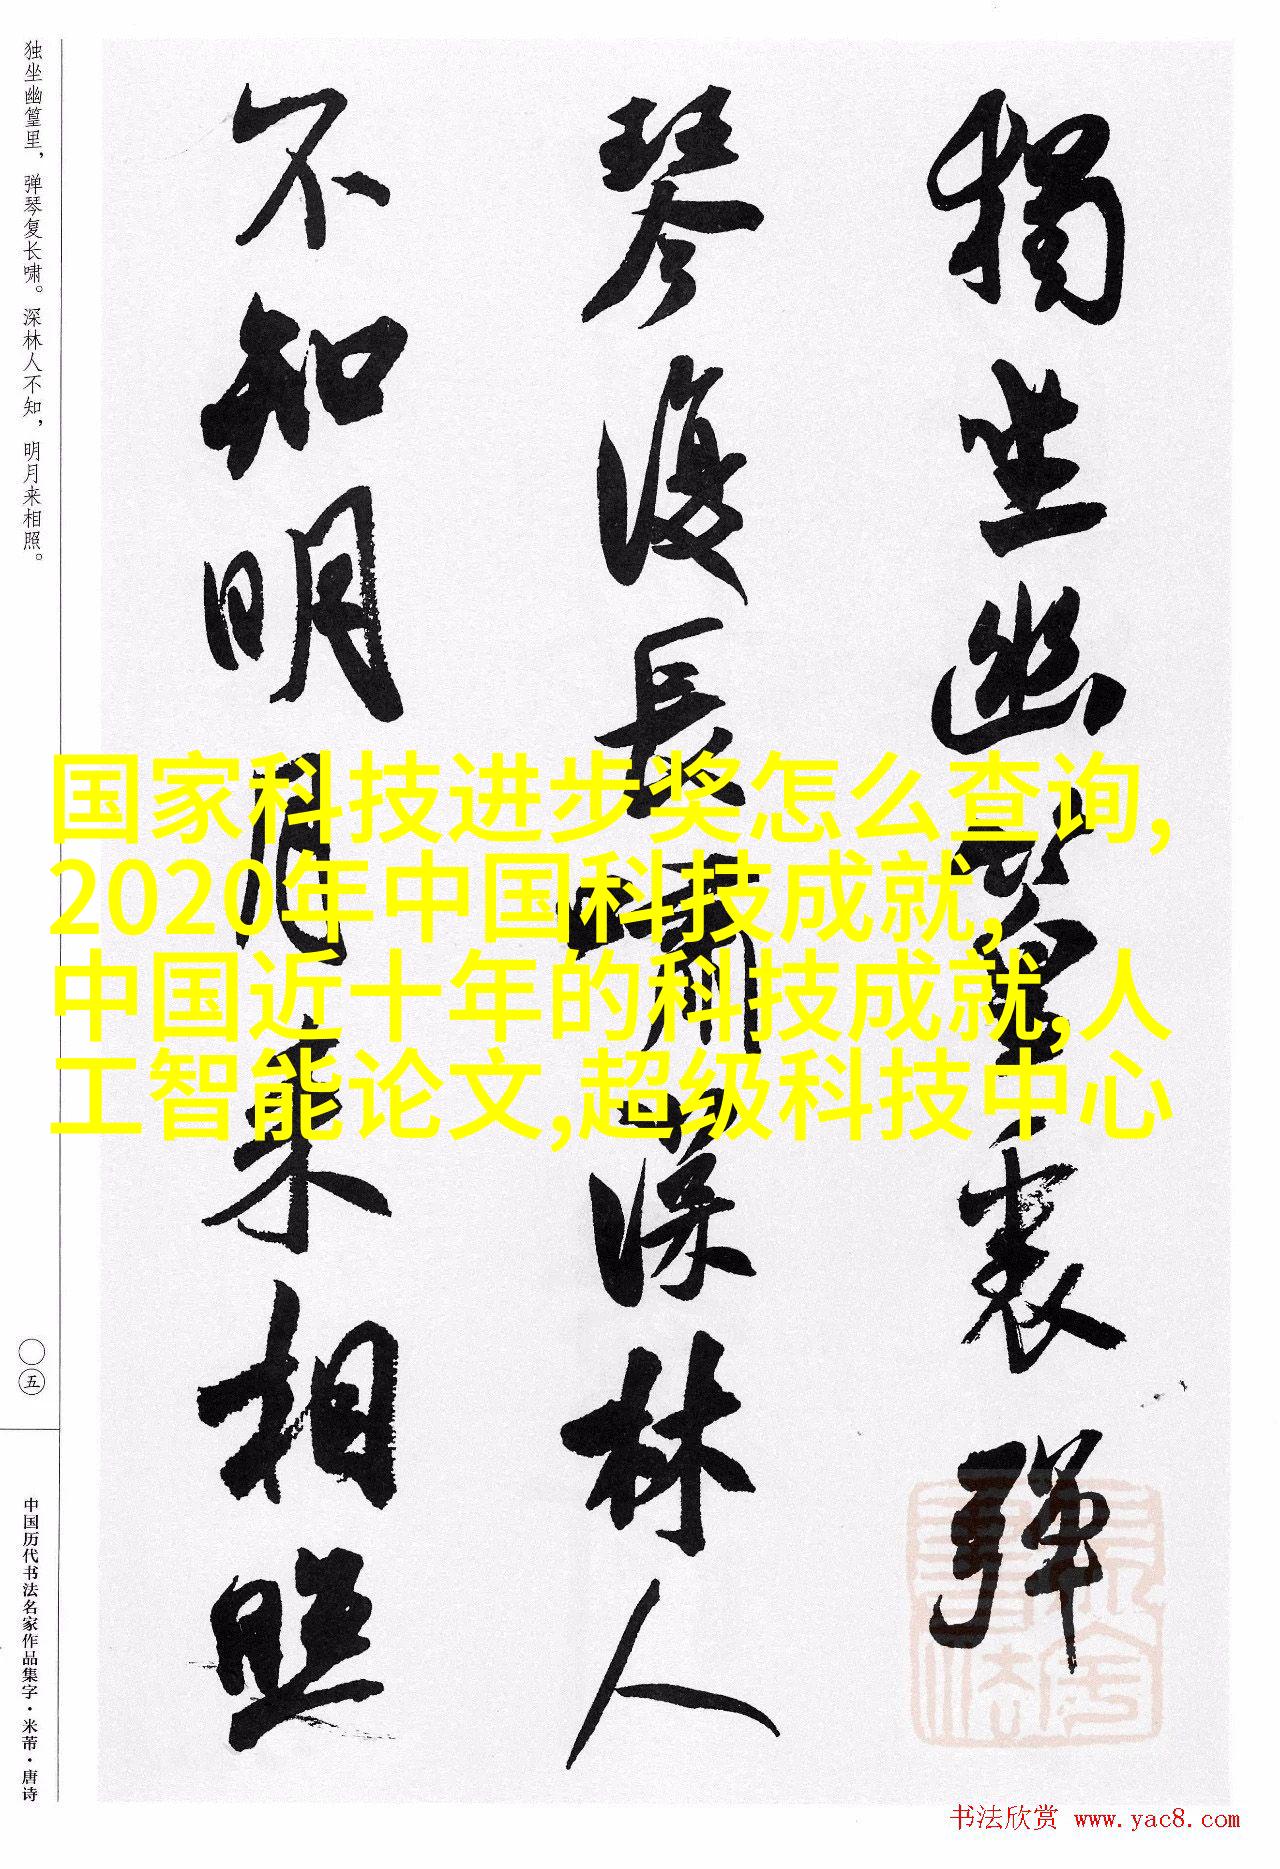 独坐幽篁里，弹琴复长啸。深林人不知，明月来相照。
獨坐幽篁裏彈
琴復長嘯深林人
不知明月来相照
国家科技进步奖怎么查询,
2020年中国科技成就,
中国近十年的科技成就,人
工智能论文,超级科技中心
〇五
中国历代书法名家作品集字·米芾·唐诗
书法欣赏 www.yac8.com